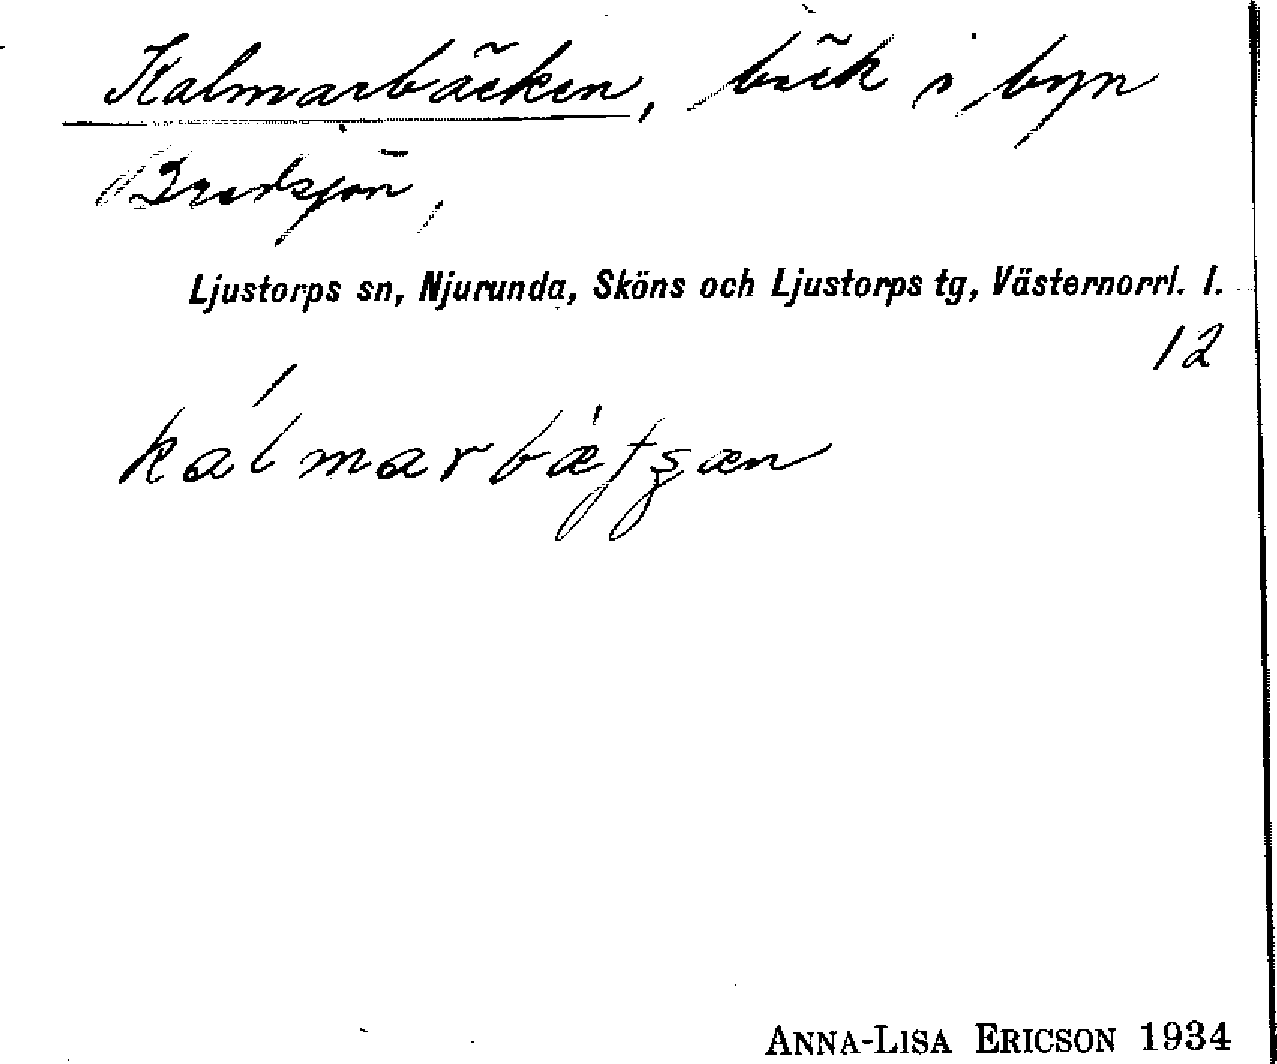 Kalmarbäcken, bäck i byn
Bredsjön,
Ljustorps sn, Njurunda, Sköns och Ljustorps tg, Västernorrl. l.
12
kálmarbæ̀tʂæn
ANNA-LISA ERICSON 1934